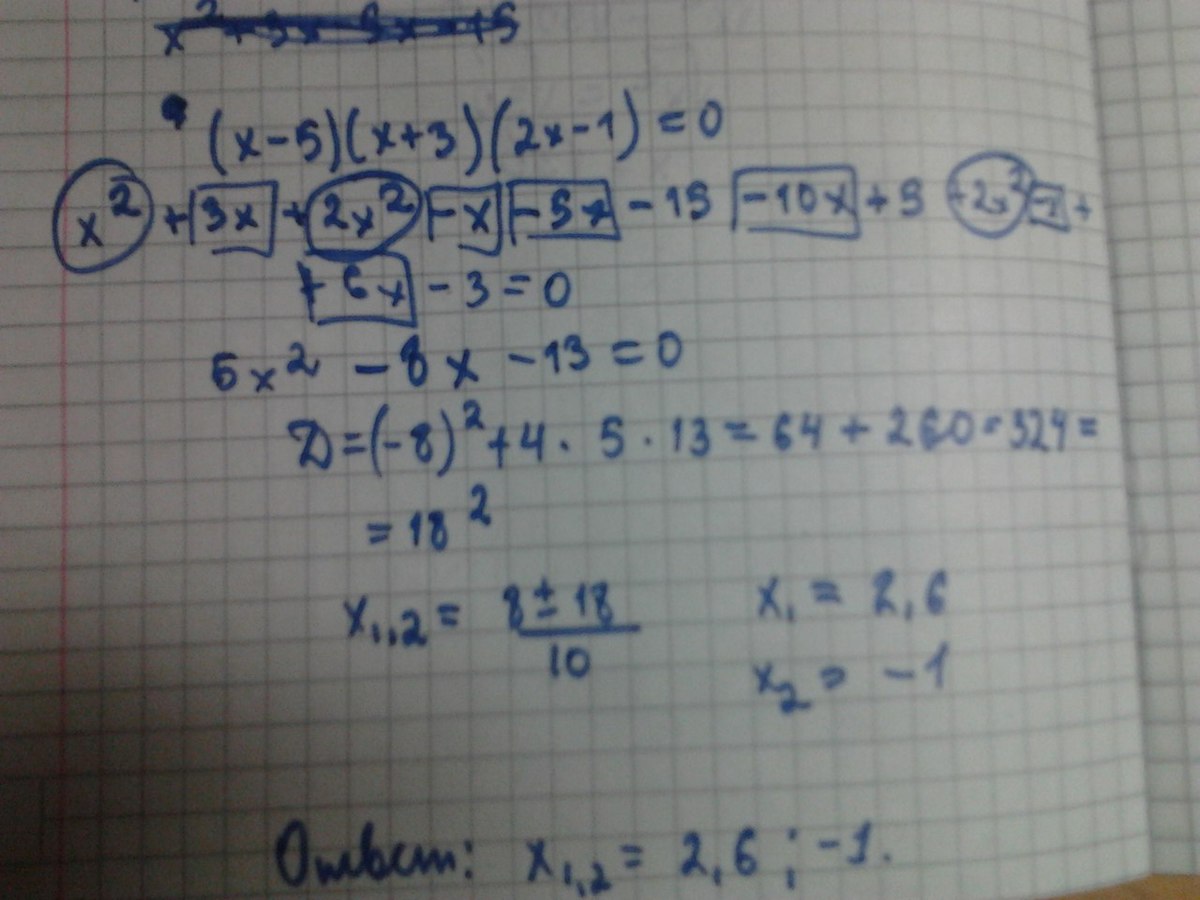 x² + 3x - 5x + 5
(x-5)(x+3)(2x-1)=0
x² + 3x + 2x² - x - 5x - 15 - 10x + 5 + 2x² - x +
+ 6x - 3 = 0
5x² - 8x - 13 = 0
D = (-8)² + 4 · 5 · 13 = 64 + 260 = 324 =
= 18²
x₁,₂ = (8 ± 18)/10 x₁ = 2,6
x₂ = -1
Ответ: x₁,₂ = 2,6 ; -1.